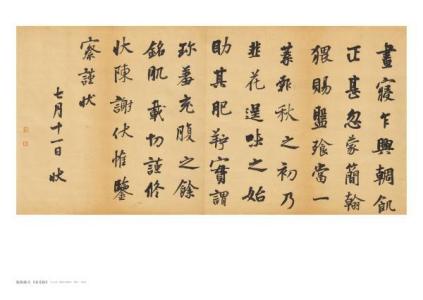 晝寢乍興輖飢
正甚忽蒙簡翰
猥賜盤飧當一
葉報秋之初乃
韭花逞味之始
助其肥羜實謂
珍羞充腹之餘
銘肌載切謹修
狀陳謝伏惟鑒
察謹狀
七月十一日狀